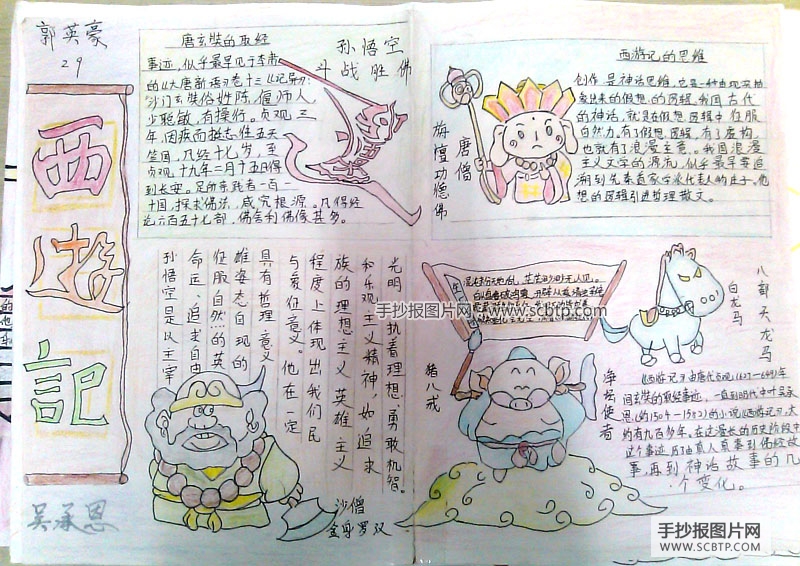 郭英豪
29
西遊記
吴承恩
唐玄奘的取经
事迹,似乎最早见于李
的《大唐新语》卷十三《记异》:
沙门玄奘俗姓陈,偃师人,
少聪敏,有操行。贞观三
年,因疾而挺志往五天
竺国,凡经十七岁,至
贞观十九年二月十五日
到长安。足所亲践者一百一
十国,探求佛法,咸究根源。凡得经
论六百五十七部,佛舍利佛像甚多。
孙悟空
斗战胜佛
西游记的思维
创作是神话思维,它是一种由现实抽
象出来的假想的逻辑。我国古代
的神话,就是在假想逻辑中征服
自然力。有了假想逻辑,有了虚构,
也就有了浪漫主意。我国浪漫
主义文学的源流,似乎最早要追
溯到先秦道家学派代表人的庄子。他
想的逻辑引进哲理散文。
唐僧
旃檀功德佛
光明、执着理想、勇敢机智。
和乐观主义精神,如追求
族的理想主义英雄主义
程度上体现出我们民
与象征意义。他在一定
具有哲理意义
雄姿态自现的
征服自然的英
命运、追求自由
孙悟空是以主宰
沙僧
金身罗汉
混沌未分天地乱,茫茫渺渺无人见。
猪八戒
净坛使者
白龙马
八部天龙马
《西游记》由唐代贞观(627—649)年
间玄奘的取经事迹,一直到明代中叶吴承
恩(约1504—1582)的小说《西游记》,大
约有九百多年。在这漫长的历史阶段中
这个事迹,历了由真人真事到佛经故
事,再到神话故事的几
个变化。
手抄报图片网
www.scbtp.com
手抄报图片网
WWW.SCBTP.COM